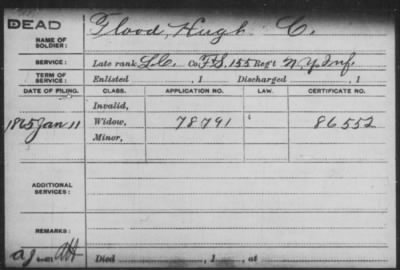 DEAD
NAME OF SOLDIER: Flood, Hugh C.
SERVICE: Late rank L.C. Co F.S., 155 Reg't N.Y. Inf.
TERM OF SERVICE: Enlisted , 1 Discharged , 1
DATE OF FILING. CLASS. APPLICATION NO. LAW. CERTIFICATE NO.
Invalid,
1865 Jan 11 Widow, 78791 86552
Minor,
ADDITIONAL SERVICES:
REMARKS:
Died , 1 , at